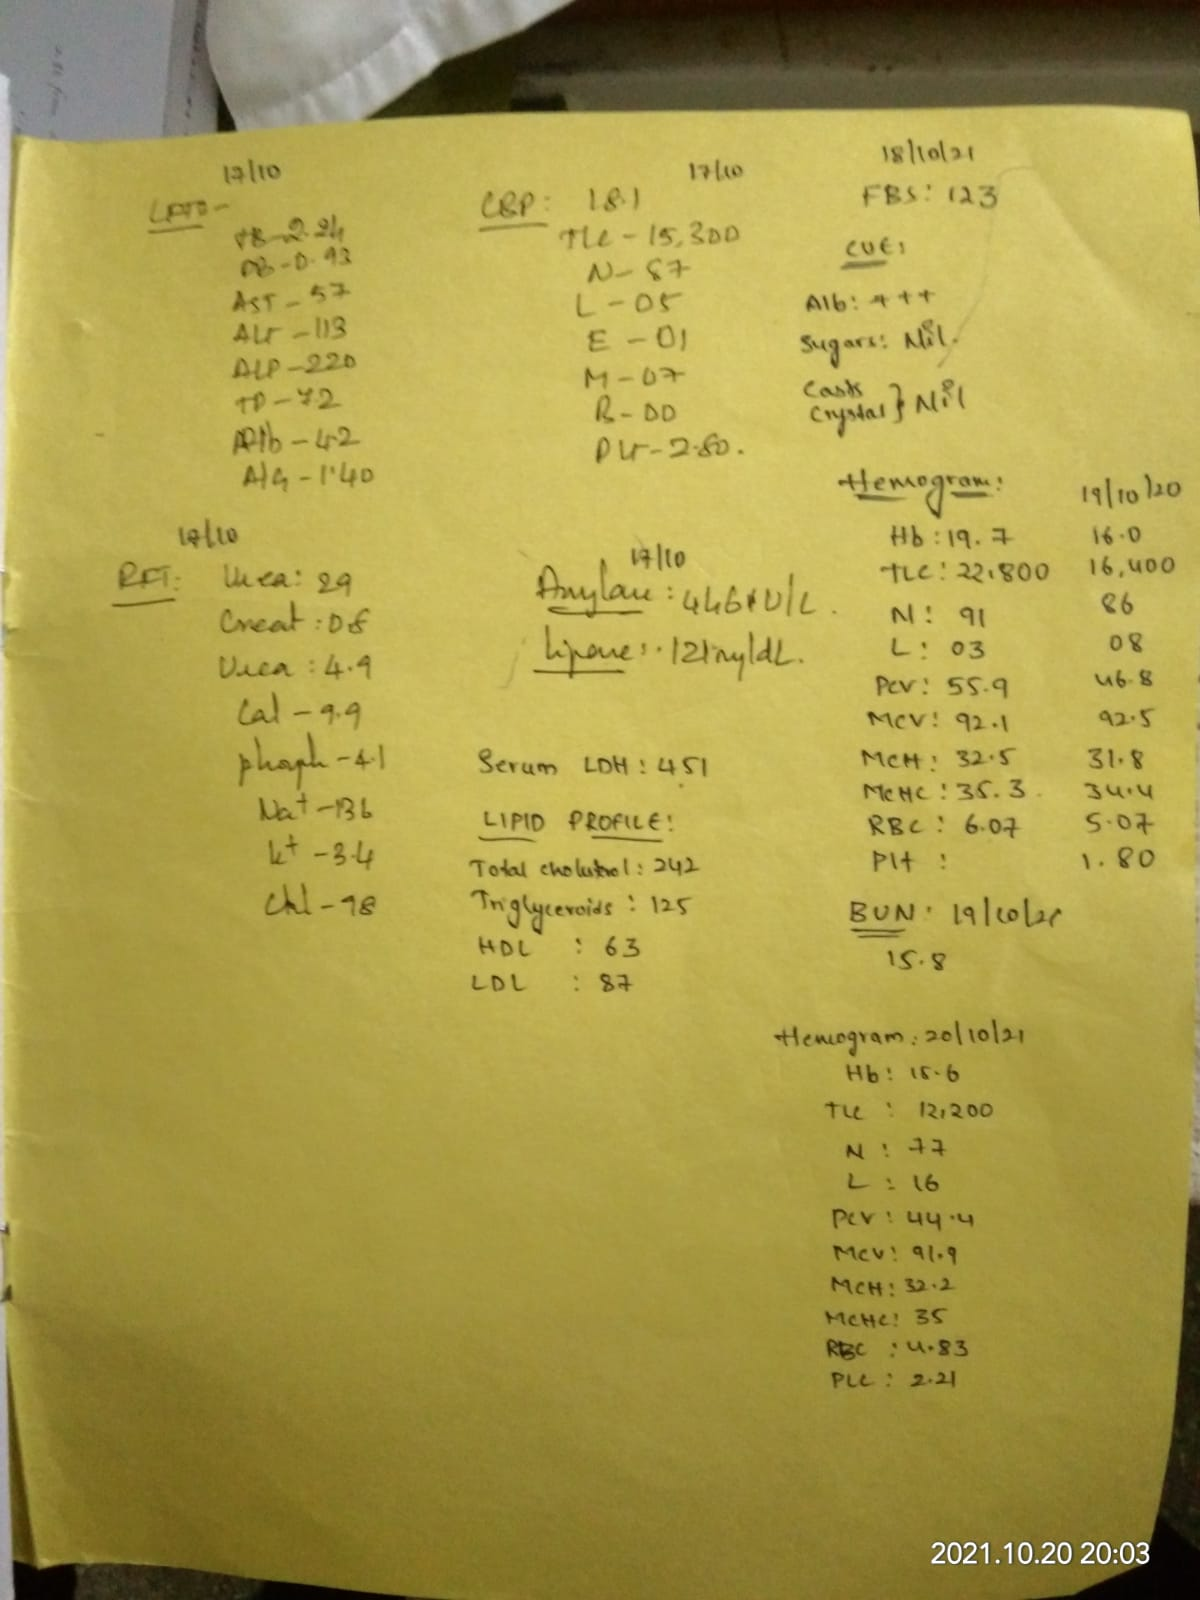 17/10
LFT:-
TB-2.24
DB-0.93
AST-57
ALT-113
ALP-220
TP-7.2
Alb-4.2
A/G-1.40
17/10
RFT: Urea: 29
Creat: 0.8
Urea: 4.9
Cal-9.9
phosph-4.1
Na+-136
k+-3.4
Chl-98
17/10
CBP: 18.1
TLC-15,300
N-87
L-05
E-01
M-07
B-00
PLT-2.80.
17/10
Amylase:
Lipase:
Serum LDH: 451
LIPID PROFILE:
Total cholutrol: 242
Triglyceroids: 125
HDL: 63
LDL: 87
18/10/21
FBS: 123
CUE:
Alb: +++
Sugars: Nil.
Casts
Crystal } Nil
Hemogram: 19/10/20
Hb: 19.7 16.0
TLC: 22,800 16,400
N: 91 86
L: 03 08
PCV: 55.9 46.8
MCV: 92.1 92.5
MCH: 32.5 31.8
MCHC: 35.3 34.4
RBC: 6.07 5.07
Plt: 1.80
BUN: 19/10/21
15.8
Hemogram: 20/10/21
Hb: 15.6
TLC: 12,200
N: 77
L: 16
PCV: 44.4
MCV: 91.9
MCH: 32.2
MCHC: 35
RBC: 4.83
PLC: 2.21
2021.10.20 20:03